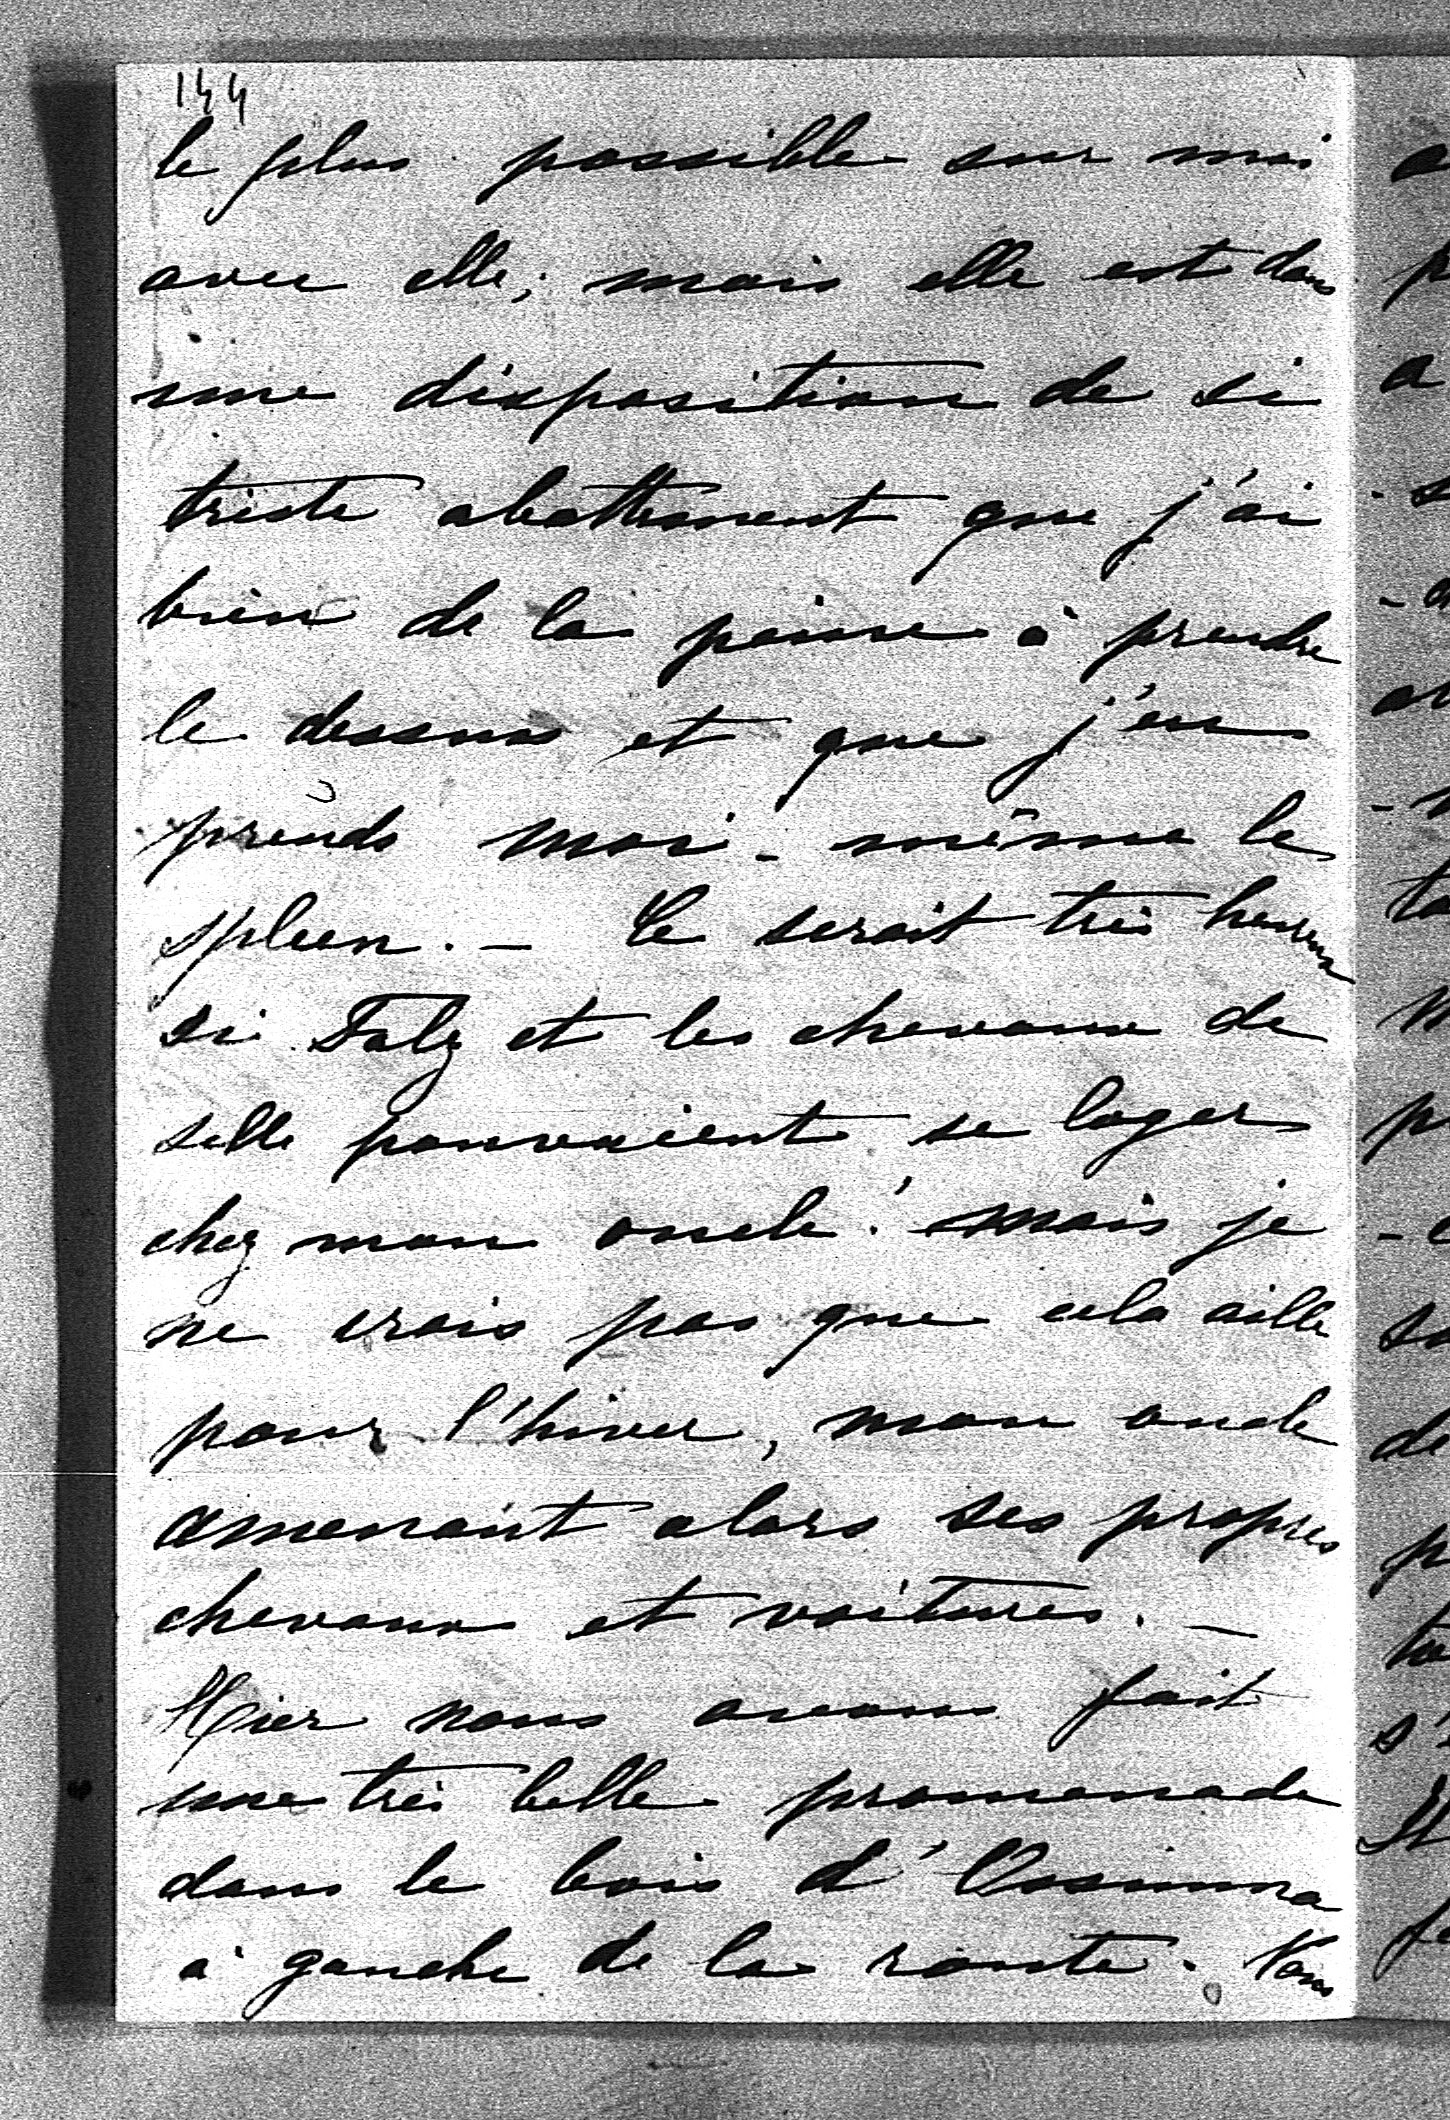 144
le plus possible sur moi
avec elle; mais elle est dans
une disposition de si
triste abattement que j'ai
bien de la peine à prendre
le dessus et que j'en
prends moi-même le
spleen. — Ce serait très heureux
si Falz et les chevaux de
selle pouvaient se loger
chez mon oncle! mais je
ne crois pas que cela aille
pour l'hiver, mon oncle
amenant alors ses propres
chevaux et voitures. —
Hier nous avons fait
une très belle promenade
dans le bois d'Ossinova
à gauche de la route. Nous